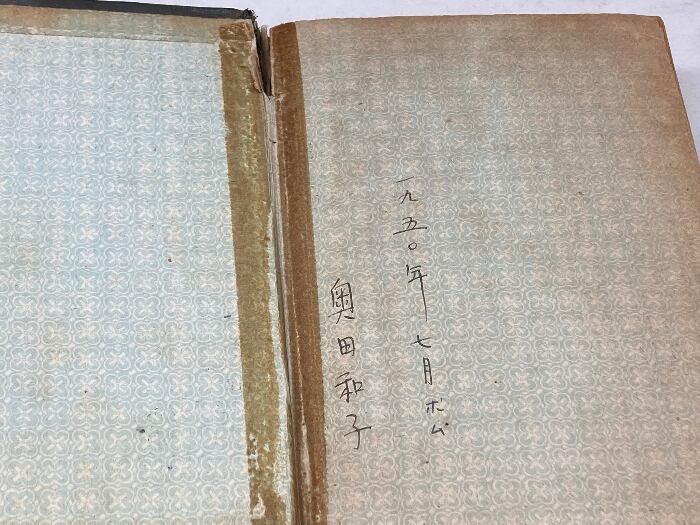 一九五〇年七月ボム
奥田和子